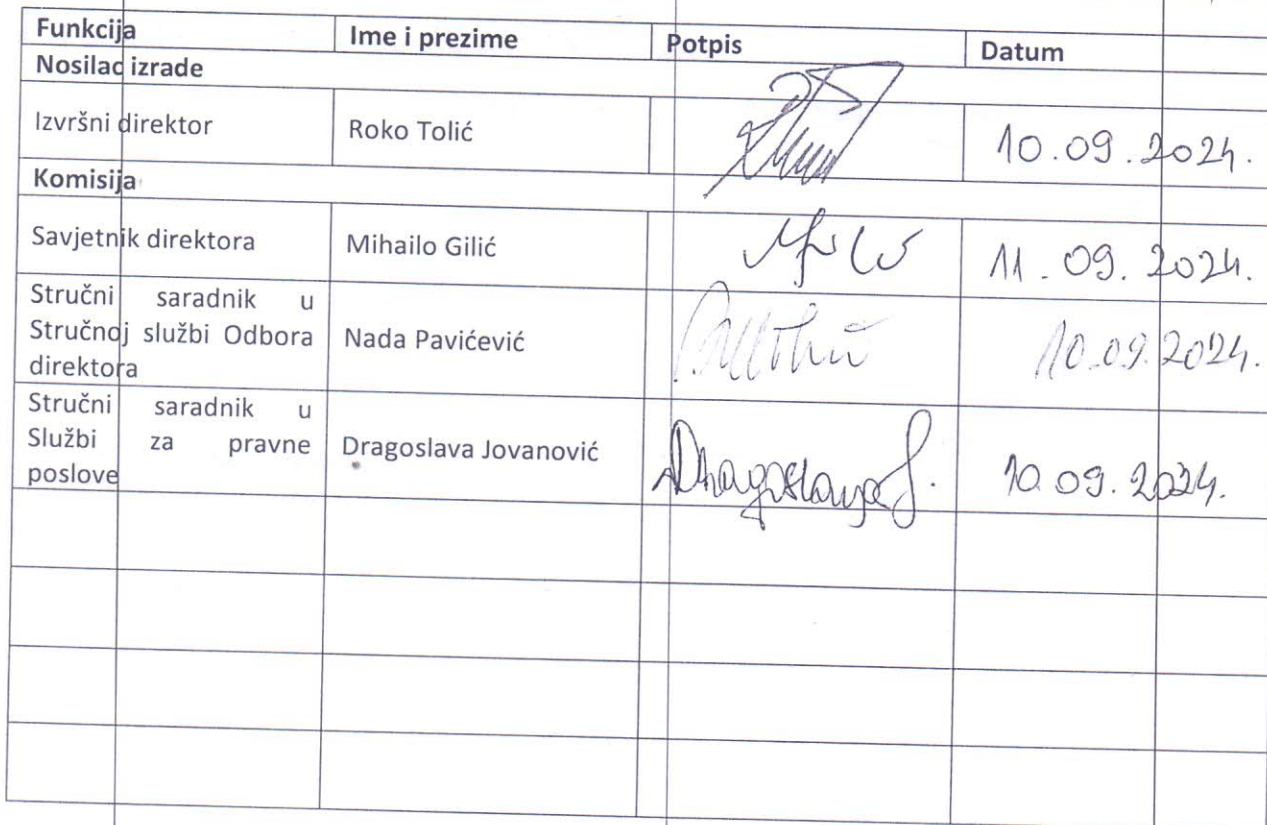 Funkcija Ime i prezime Potpis Datum
Nosilac izrade
Izvršni direktor Roko Tolić 10.09.2024.
Komisija
Savjetnik direktora Mihailo Gilić 11.09.2024.
Stručni saradnik u
Stručnoj službi Odbora Nada Pavićević 10.09.2024.
direktora
Stručni saradnik u
Službi za pravne Dragoslava Jovanović Dragoslava J. 10.09.2024.
poslove